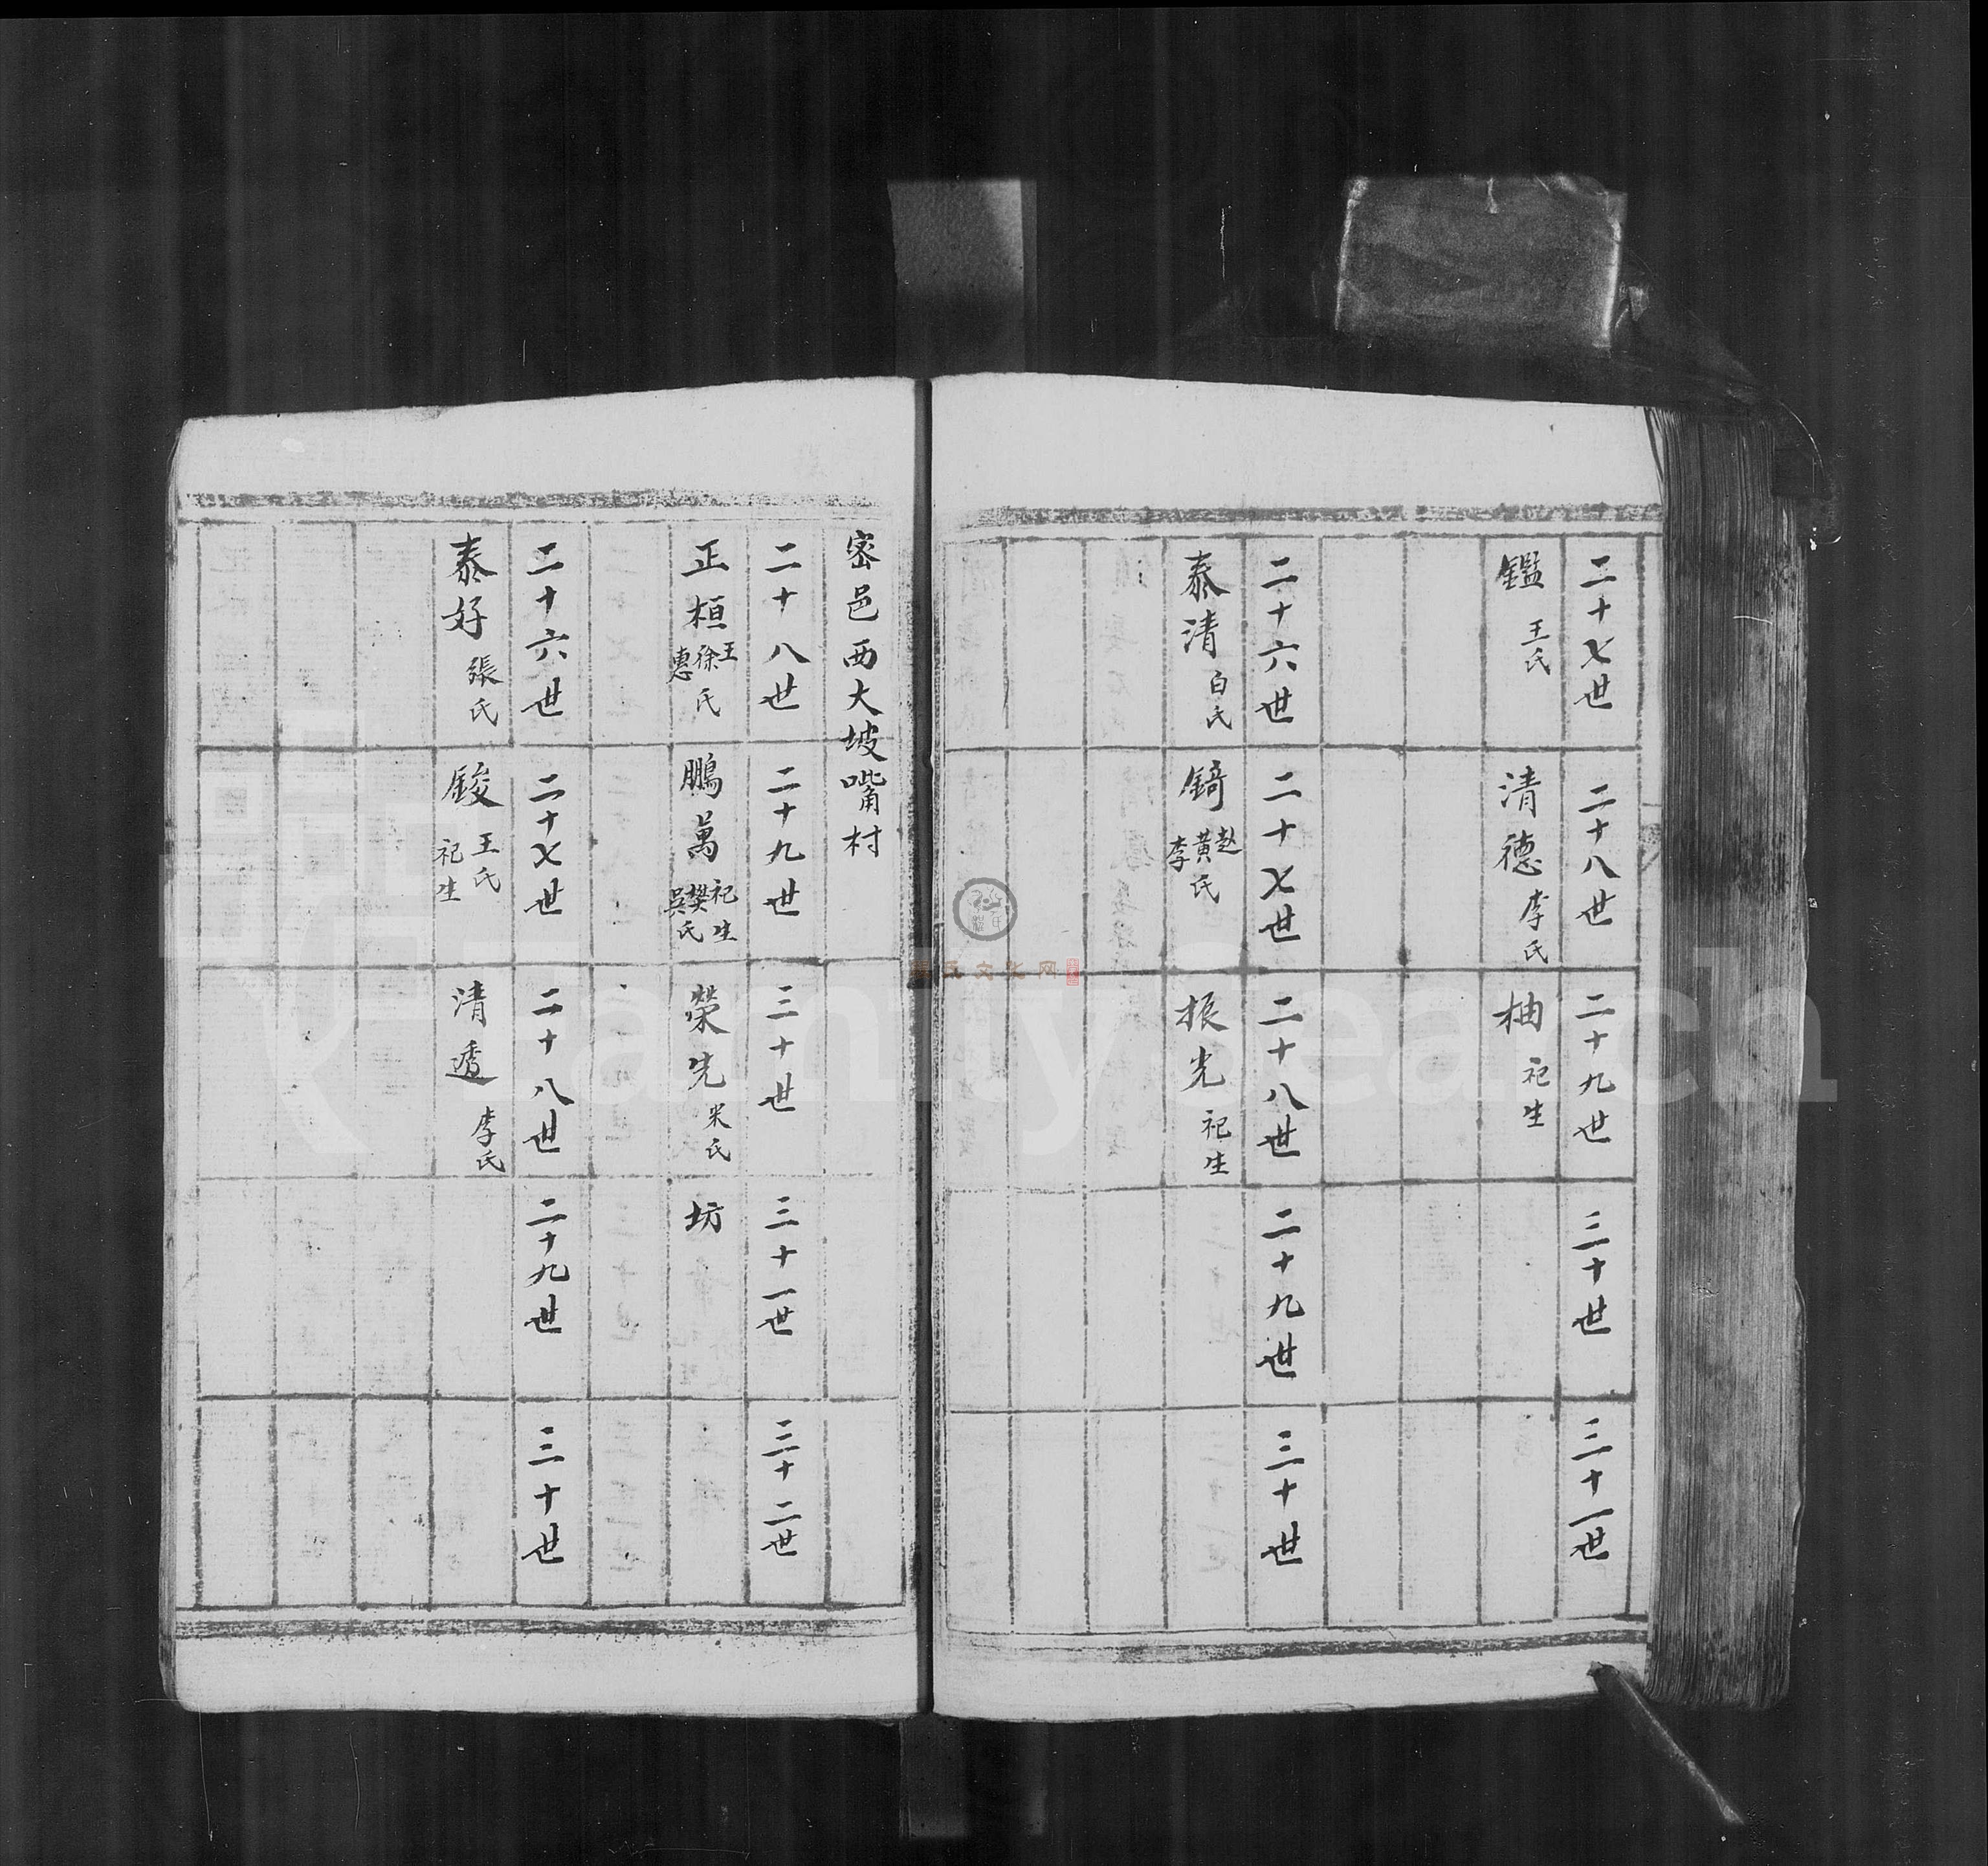 二十七世 二十八世 二十九世 三十世 三十一世
鑑 王氏 清德 李氏 柚 祀生
二十六世 二十七世 二十八世 二十九世 三十世
泰清 白氏 錡 赵黄李氏 振光 祀生
密邑西大坡嘴村
二十八世 二十九世 三十世 三十一世 三十二世
正桓 王徐惠氏 鵬萬 祀生 樊吳氏 榮先 米氏 坊
二十六世 二十七世 二十八世 二十九世 三十世
泰好 張氏 鋑 王氏 祀生 清 李氏
FamilySearch
氏文化网